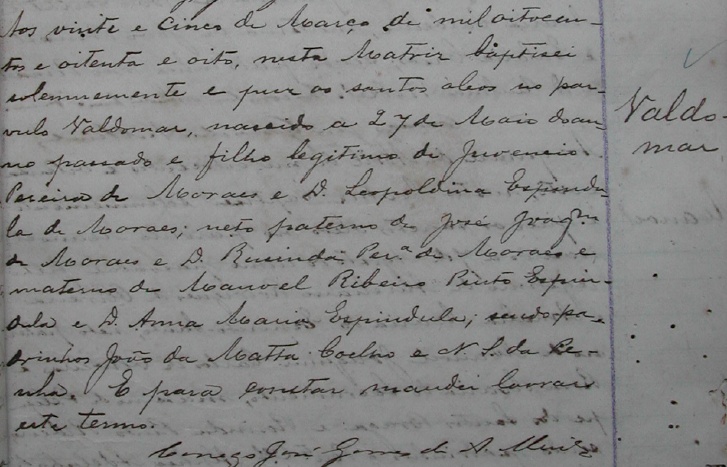 Aos vinte e cinco de Março de mil oitocen-
tos e oitenta e oito, nesta Matriz baptisei
solemnemente e puz os santos oleos no par-
vulo Valdomar, nascido a 27 de Maio do an-
no passado e filho legitimo de Juvencio
Pereira de Moraes e D. Leopoldina Espindu-
la de Moraes; neto paterno de José Joaqm
de Moraes e D. Rusinda Per.a de Moraes e
materno de Manoel Ribeiro Pinto Espin-
dula e D. Anna Maria Espindula; sendo pa-
drinhos João da Matta Coelho e N. S. da Pe-
nha. E para constar mandei lavrar
este termo.
Conego José Gomes de A.
Valdo-
mar